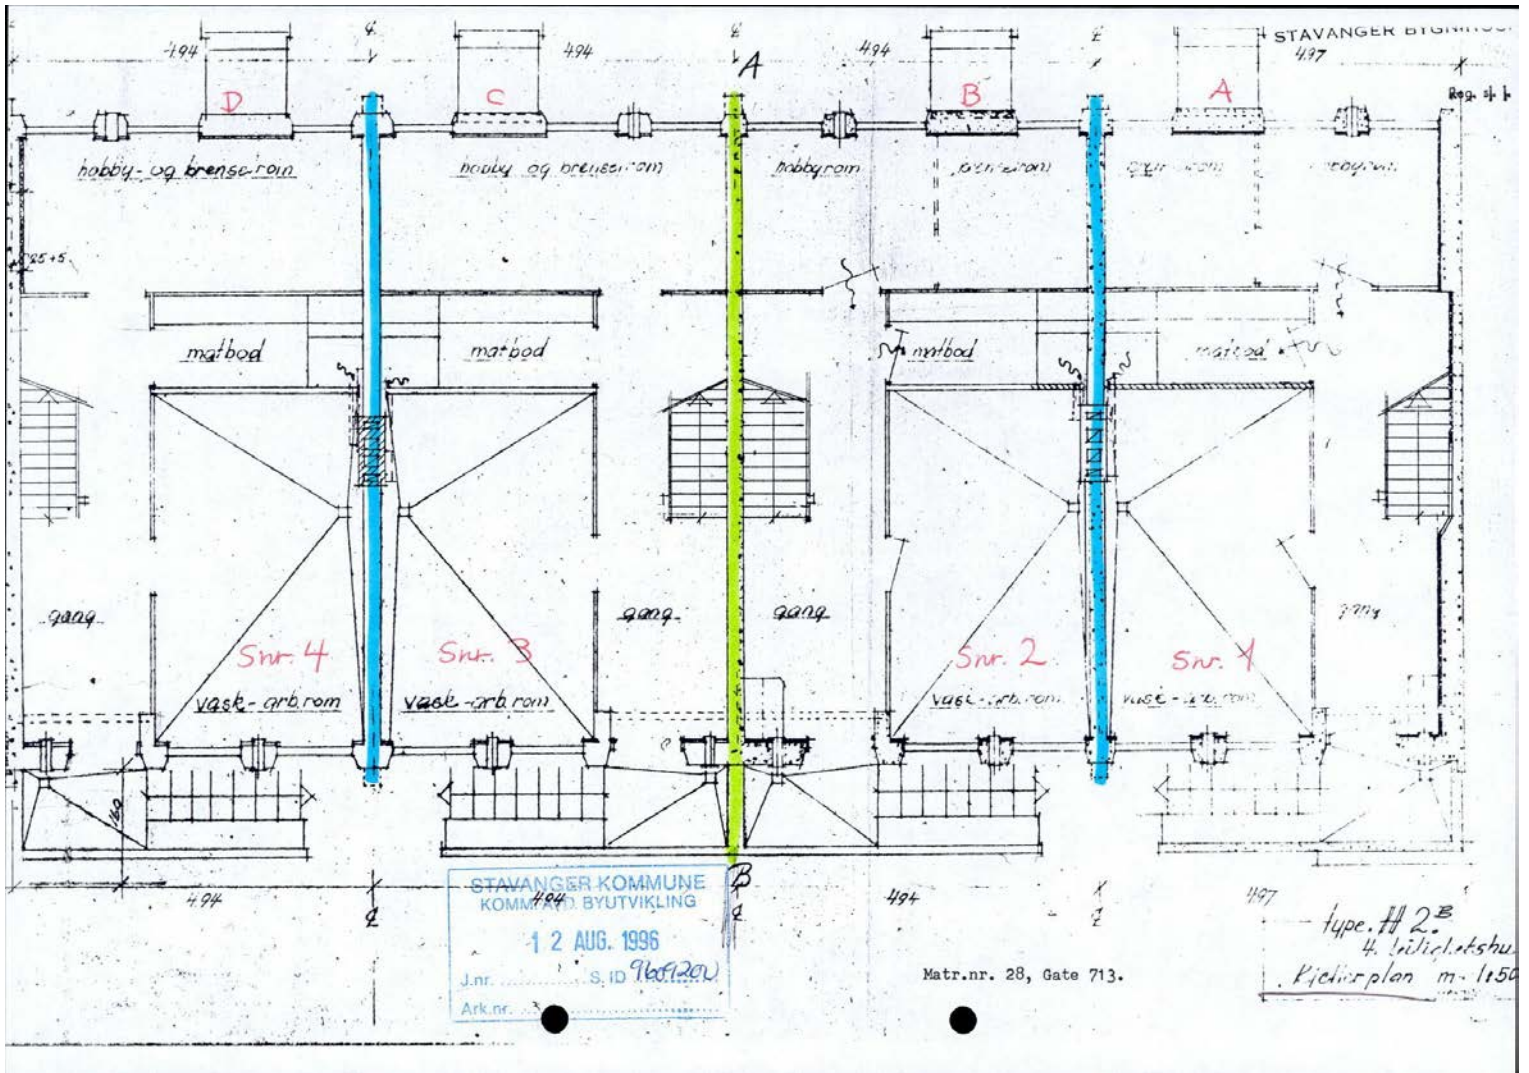 STAVANGER
494
494
494
497
A
D
C
B
A
Reg.
hobby- og brenserom
hobby og brenserom
hobbyrom
25+5
matbod
matbod
matbod
matbod
gang
gang
gang
gang
Snr. 4
Snr. 3
Snr. 2
Snr. 1
vask-arb.rom
vask-arb.rom
vask-arb.rom
vask-arb.rom
160
494
494
494
497
B
STAVANGER KOMMUNE
BYUTVIKLING
12 AUG. 1996
J.nr. S. ID
Ark.nr.
Matr.nr. 28, Gate 713.
type. H 2B
Kjellerplan m- 1:50